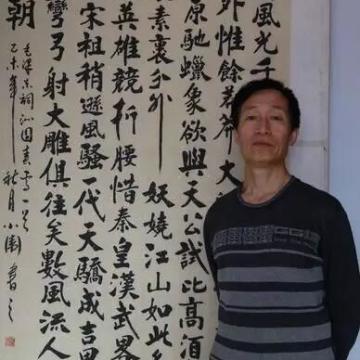 風光千
外惟餘莽莽大
原馳蠟象欲與天公試比高須
素裹分外妖嬈江山如此
英雄競折腰惜秦皇漢武畧
宋祖稍遜風騷一代天驕成吉思
彎弓射大雕俱往矣數風流人
朝
毛澤东詞沁園春雪一首
乙未年秋月小園書之